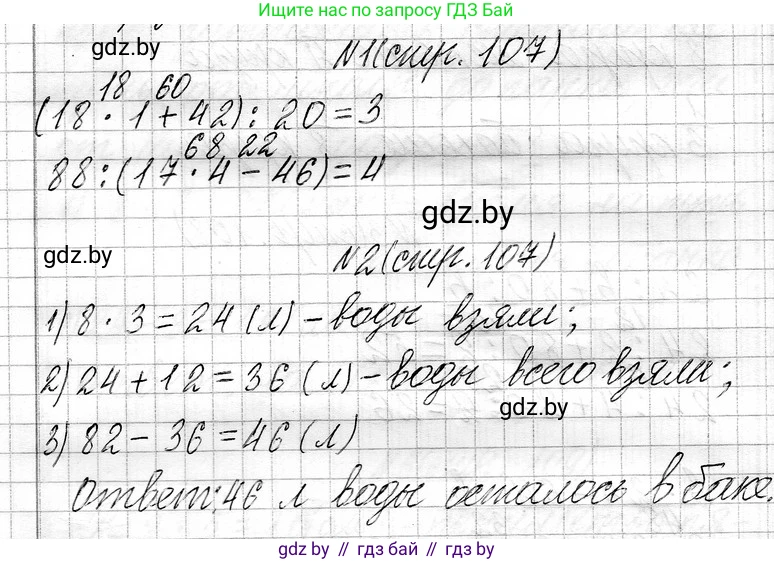 Ищите нас по запросу ГДЗ Бай
gdz.by
№1(стр. 107)
18 60
(18 · 1 + 42) : 20 = 3
68 22
88 : (17 · 4 - 46) = 4
gdz.by
gdz.by
№2(стр. 107)
1) 8 · 3 = 24 (л) - воды взяли;
2) 24 + 12 = 36 (л) - воды всего взяли;
gdz.by
3) 82 - 36 = 46 (л)
Ответ: 46 л воды осталось в баке.
gdz.by // гдз бай // gdz.by